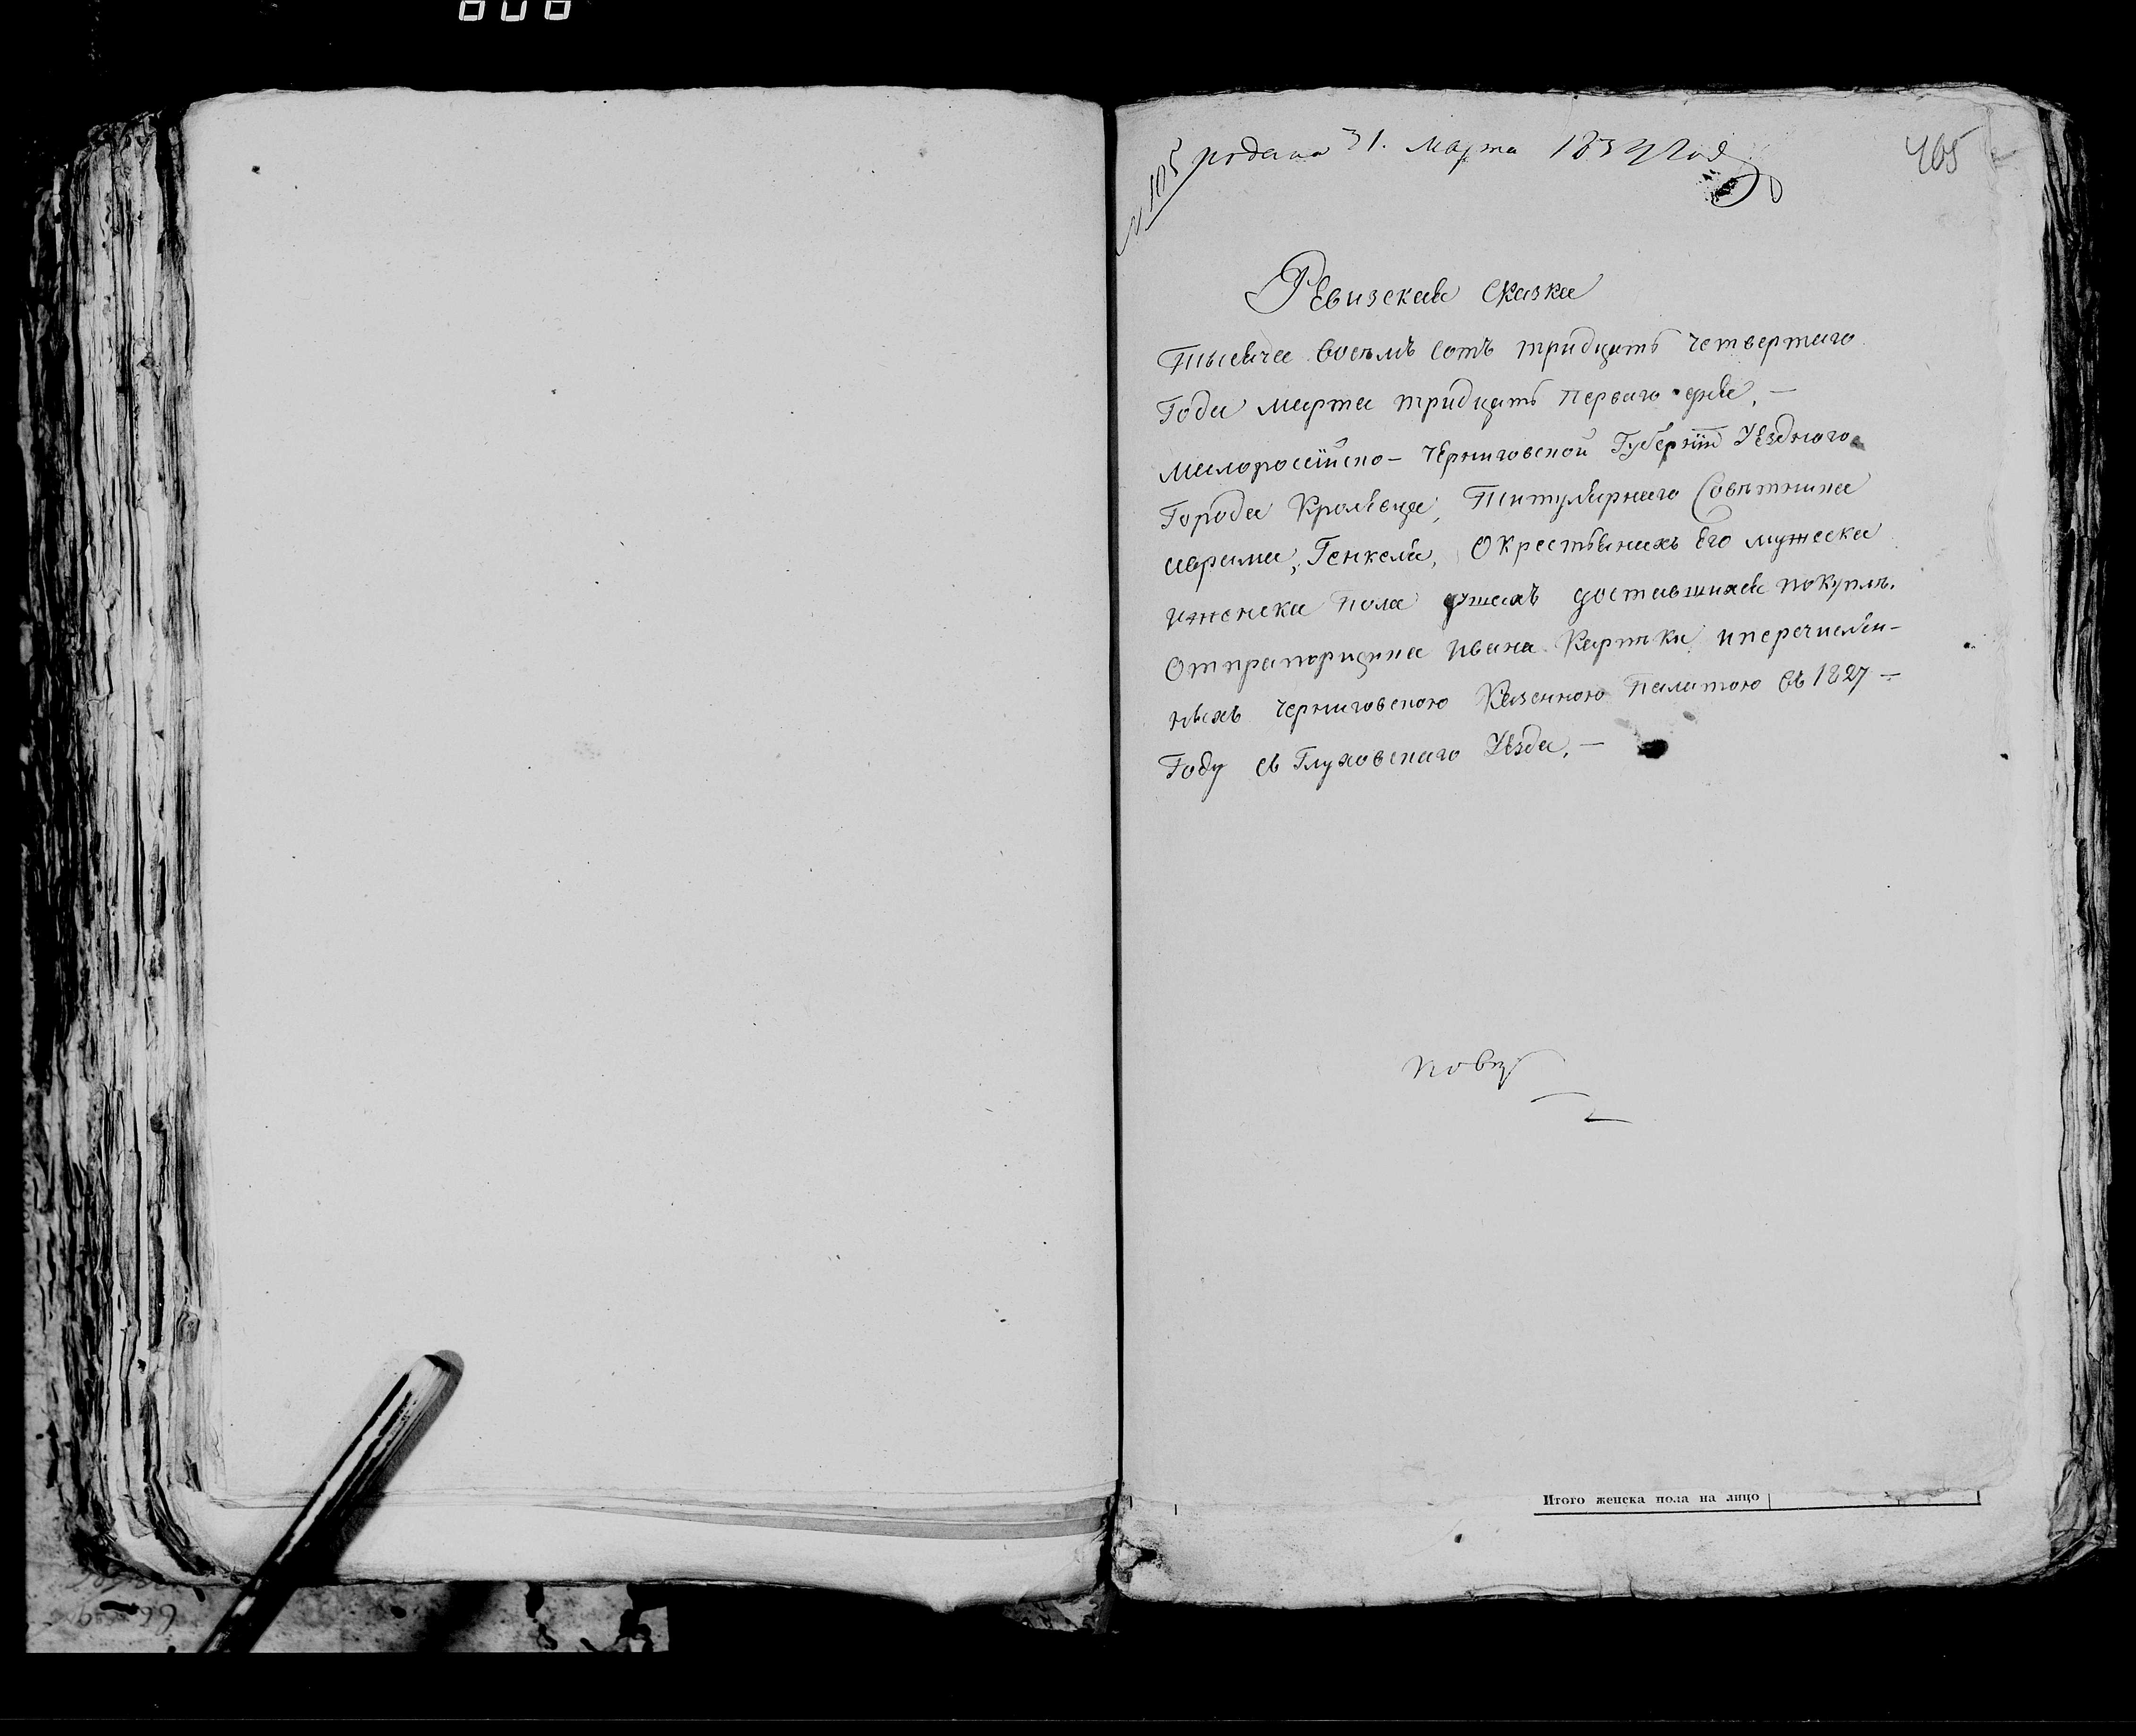 № 105 подана 31. Марта 1834 года
465
Ревизская Сказка
Тысяча восемь сотъ тридцать четвертаго
Года марта тридцать перваго дня, —
Малоросiйско – Черниговской Губернiи Уезднаго
Города Кролевца, Титулярнаго Советника
Генкеля, Окрестьянахъ Его мужеска
иженска пола душахъ доставшихся покупле.
Отпрапорщика Ивана иперечислен-
ныхъ Черниговскою Казенною Палатою въ 1827 –
Году съ Глуховскаго Уезда, —
Итого женска пола на лицо